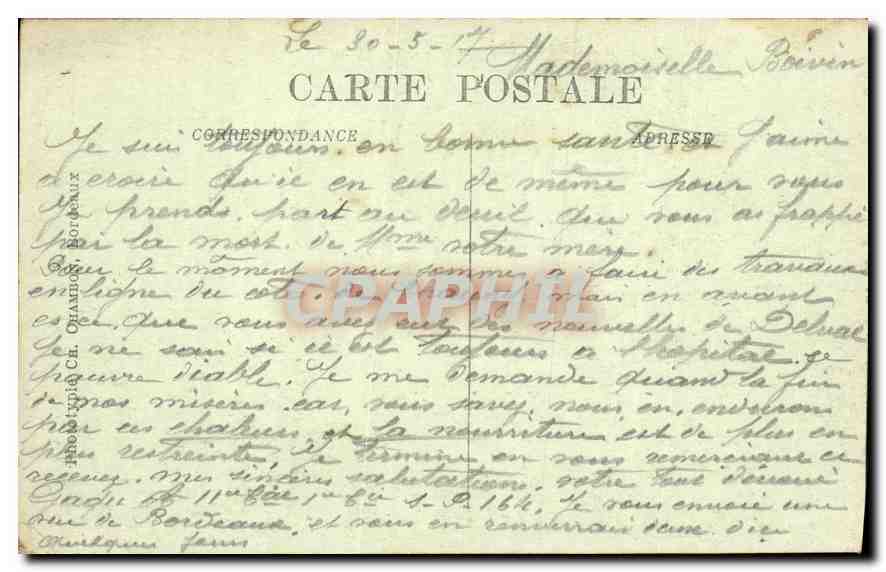 Le 30-5-17
Mademoiselle Boivin
CARTE POSTALE
CORRESPONDANCE
ADRESSE
Je suis toujours en bonne santé et j'aime
a croire qu'il en est de même pour vous
Je prends part au deuil que vous as frappé
par la mort de Mme votre mère.
Pour le moment nous somme a faire des travaux
en ligne du coté de mais en avant
es ce que vous avez eut des nouvelles de Delval
Je ne sais si il est toujours a l'hopital ce
pauvre diable. Je me demande quand la fin
de nos misères car, vous savez, nous en endurons
par ces chaleurs et la nourriture est de plus en
plus restreinte, Je termine en vous remerciant et
recevez mes sincères salutations. votre tout dévoué
11e 1re Cie S.P. 164. Je vous envoie une
vue de Bordeaux et vous en renverrai dans dici
quelques jours
Phototypie Ch. Chambon, Bordeaux
CPAPHIL